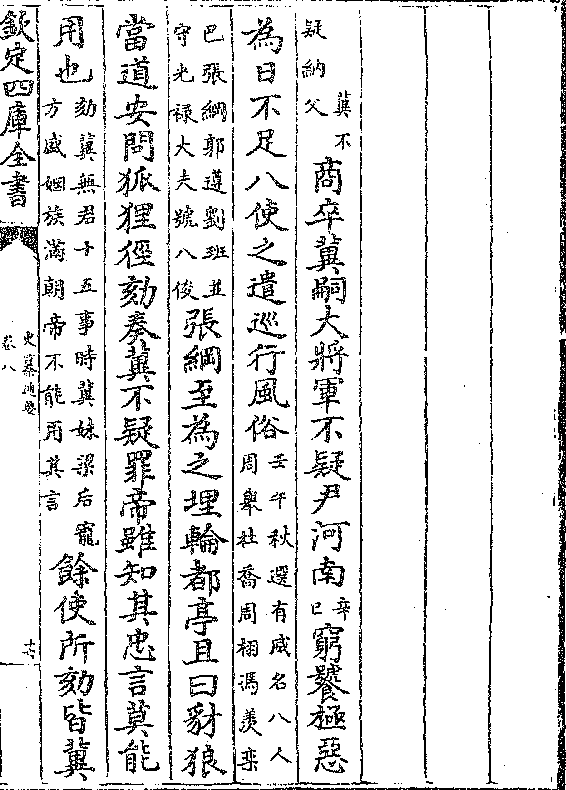 冀不疑納父商卒冀嗣大將軍不疑尹河南辛巳窮饕極惡
為日不足八使之遣巡行風俗壬午秋選有威名八人周舉杜喬周栩馮羡欒
巴張綱郭遵劉班並守光祿大夫號八俊張綱至為之埋輪都亭且曰豺狼
當道安問狐狸徑劾奏冀不疑罪帝雖知其忠言莫能
用也劾冀無君十五事時冀妹梁后寵方盛姻族滿朝帝不能用其言餘使所劾皆冀
欽定四庫全書
史纂通要
卷八